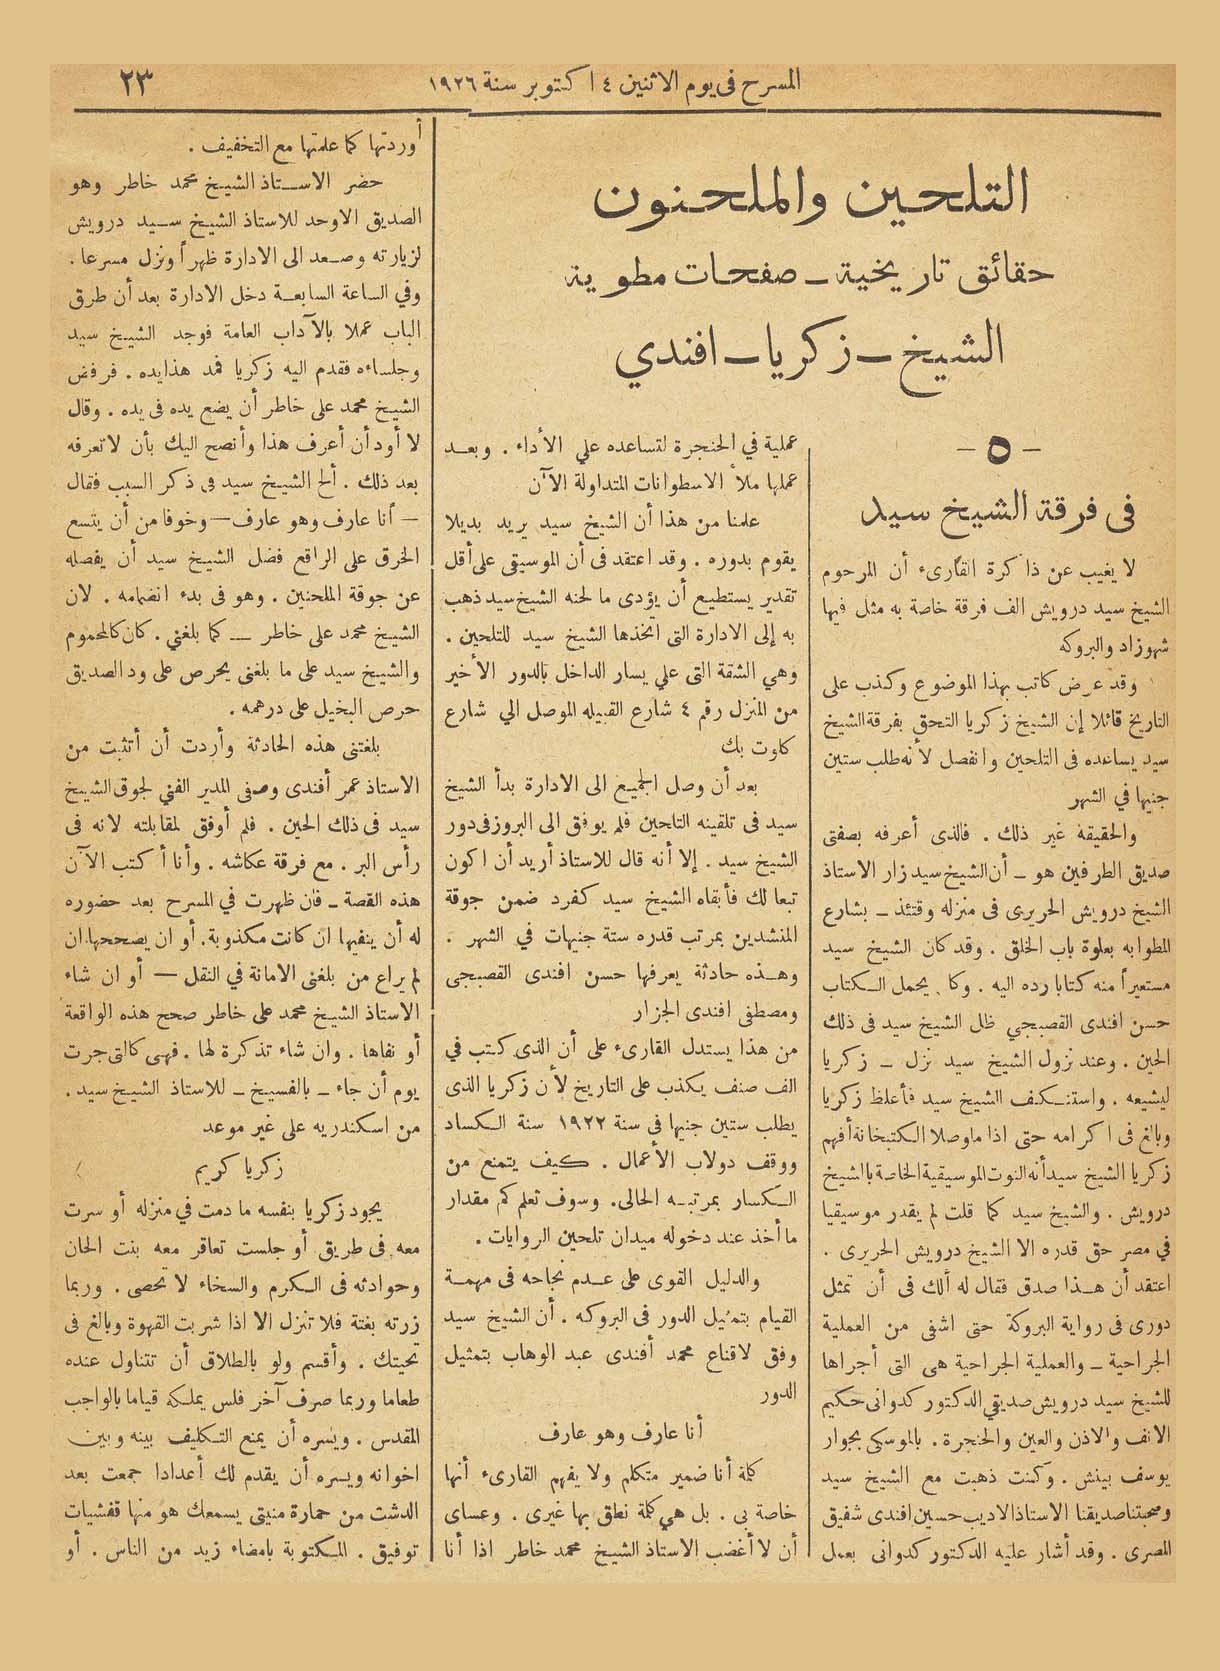 المسرح فى يوم الاثنين ٤ اكتوبر سنة ١٩٢٦
٢٣
التلحين والملحنون
حقائق تاريخية ــ صفحات مطوية
الشيخ ــ زكريا ــ افندي
ــ ٥ ــ
فى فرقة الشيخ سيد
لا يغيب عن ذاكرة القارىء أن المرحوم
الشيخ سيد درويش الف فرقة خاصة به مثل فيها
شهوزاد والبروكه
وقد عرض كاتب بهذا الموضوع وكذب على
التاريخ قائلا إن الشيخ زكريا التحق بفرقة الشيخ
سيد يساعده فى التلحين وانفصل لأنه طلب ستين
جنيها في الشهر
والحقيقة غير ذلك . فالذى أعرفه بصفتى
صديق الطرفين هو ــ أن الشيخ سيد زار الاستاذ
الشيخ درويش الحريرى فى منزله وقتئذ ــ بشارع
المطوابه بعلوة باب الخلق . وقد كان الشيخ سيد
مستعيراً منه كتابا رده اليه . وكا يحمل الكتاب
حسن افندى القصبجي ظل الشيخ سيد فى ذلك
الحين . وعند نزول الشيخ سيد نزل ــ زكريا
ليشيعه . واستنكف الشيخ سيد فأغلظ زكريا
وبالغ فى اكرامه حتى اذا ماوصلا الكتبخانة أفهم
زكريا الشيخ سيد أنه النوت الموسيقية الخاصة بالشيخ
درويش . والشيخ سيد كما قلت لم يقدر موسيقيا
في مصر حق قدره الا الشيخ درويش الحريرى .
اعتقد أن هذا صدق فقال له ألك فى أن تمثل
دورى فى رواية البروكة حتى اشفى من العملية
الجراحية ــ والعملية الجراحية هى التى أجراها
للشيخ سيد درويش صديقي الدكتور كدوانى حكيم
الانف والاذن والعين والحنجرة . بالموسكى بجوار
يوسف بينش . وكنت ذهبت مع الشيخ سيد
وصحبتنا صديقنا الاستاذ الاديب حسين افندى شفيق
المصرى . وقد أشار عليه الدكتور كدوانى بعمل
عملية في الحنجرة لتساعده علي الأداء . وبعد
عملها ملأ الاسطوانات المتداولة الآن
علمنا من هذا أن الشيخ سيد يريد بديلا
يقوم بدوره . وقد اعتقد فى أن الموسيقى على أقل
تقدير يستطيع أن يؤدى ما لحنه الشيخ سيد ذهب
به إلى الادارة التى اتخذها الشيخ سيد للتلحين .
وهي الشقة التى علي يسار الداخل بالدور الأخير
من المنزل رقم ٤ شارع القبيله الموصل الي شارع
كلوت بك
بعد أن وصل الجميع الى الادارة بدأ الشيخ
سيد فى تلقينه التلحين فلم يوفق الى البروز فى دور
الشيخ سيد . إلا أنه قال للاستاذ أريد أن اكون
تبعا لك فأبقاه الشيخ سيد كفرد ضمن جوقة
المنشدين بمرتب قدره ستة جنيهات في الشهر .
وهذه حادثة يعرفها حسن افندى القصبجى
ومصطفى افندى الجزار
من هذا يستدل القارىء على أن الذى كتب في
الف صنف يكذب على التاريخ لأن زكريا الذى
يطلب ستين جنيها فى سنة ١٩٢٢ سنة الكساد
ووقف دولاب الأعمال . كيف يتمنع من
الكسار بمرتبه الحالى. وسوف تعلم كم مقدار
ما أخذ عند دخوله ميدان تلحين الروايات .
والدليل القوى على عدم نجاحه فى مهمة
القيام بتمثيل الدور فى البروكه . أن الشيخ سيد
وفق لاقناع محمد أفندى عبد الوهاب بتمثيل
الدور
أنا عارف وهو عارف
كلمة أنا ضمير متكلم ولا يفهم القارىء أنها
خاصة بى . بل هي كلمة نطق بها غيرى . وعساى
أن لا أغضب الاستاذ الشيخ محمد خاطر اذا أنا
أوردتها كما علمتها مع التخفيف .
حضر الاستاذ الشيخ محمد خاطر وهو
الصديق الاوحد للاستاذ الشيخ سيد درويش
لزيارته وصعد الى الادارة ظهراً ونزل مسرعا .
وفي الساعة السابعة دخل الادارة بعد أن طرق
الباب عملا بالآداب العامة فوجد الشيخ سيد
وجلساءه فقدم اليه زكريا فمد هذا يده . فرفض
الشيخ محمد على خاطر أن يضع يده فى يده . وقال
لا أود أن أعرف هذا وأنصح اليك بأن لا تعرفه
بعد ذلك . ألح الشيخ سيد فى ذكر السبب فقال
ــ أنا عارف وهو عارف ــ وخوفا من أن يتسع
الخرق على الراقع فضل الشيخ سيد أن يفصله
عن جوقة الملحنين . وهو فى بدء انضمامه . لان
الشيخ محمد على خاطر ــ كما بلغني . كان كالمحموم
والشيخ سيد على ما بلغنى يحرص على ود الصديق
حرص البخيل على درهمه .
بلغتنى هذه الحادثة وأردت أن أتثبت من
الاستاذ عمر أفندى وصفى المدير الفني لجوق الشيخ
سيد فى ذلك الحين . فلم أوفق لمقابلته لانه فى
رأس البر . مع فرقة عكاشه . وأنا أكتب الآن
هذه القصة ــ فان ظهرت في المسرح بعد حضوره
له أن ينفيها ان كانت مكذوبة. أو ان يصححها ان
لم يراع من بلغنى الامانة في النقل ــ أو ان شاء
الاستاذ الشيخ محمد على خاطر صحح هذه الواقعة
أو نفاها . وان شاء تذكرة لها . فهى كالتى جرت
يوم أن جاء ــ بالفسيخ ــ للاستاذ الشيخ سيد .
من اسكندريه على غير موعد
زكريا كريم
يجود زكريا بنفسه ما دمت في منزله أو سرت
معه فى طريق أو جلست تعاقر معه بنت الحان
وحوادثه فى الكرم والسخاء لا تحصى . وربما
زرته بغتة فلا تنزل الا اذا شربت القهوة وبالغ فى
تحيتك . وأقسم ولو بالطلاق أن تتناول عنده
طعاما وربما صرف آخر فلس يملكه قياما بالواجب
المقدس . ويسره أن يمنع التكليف بينه وبين
اخوانه ويسره أن يقدم لك أعدادا جمعت بعد
الدشت من حمارة منيتى يسمعك هو منها قفشيات
توفيق . المكتوبة بامضاء زيد من الناس . أو